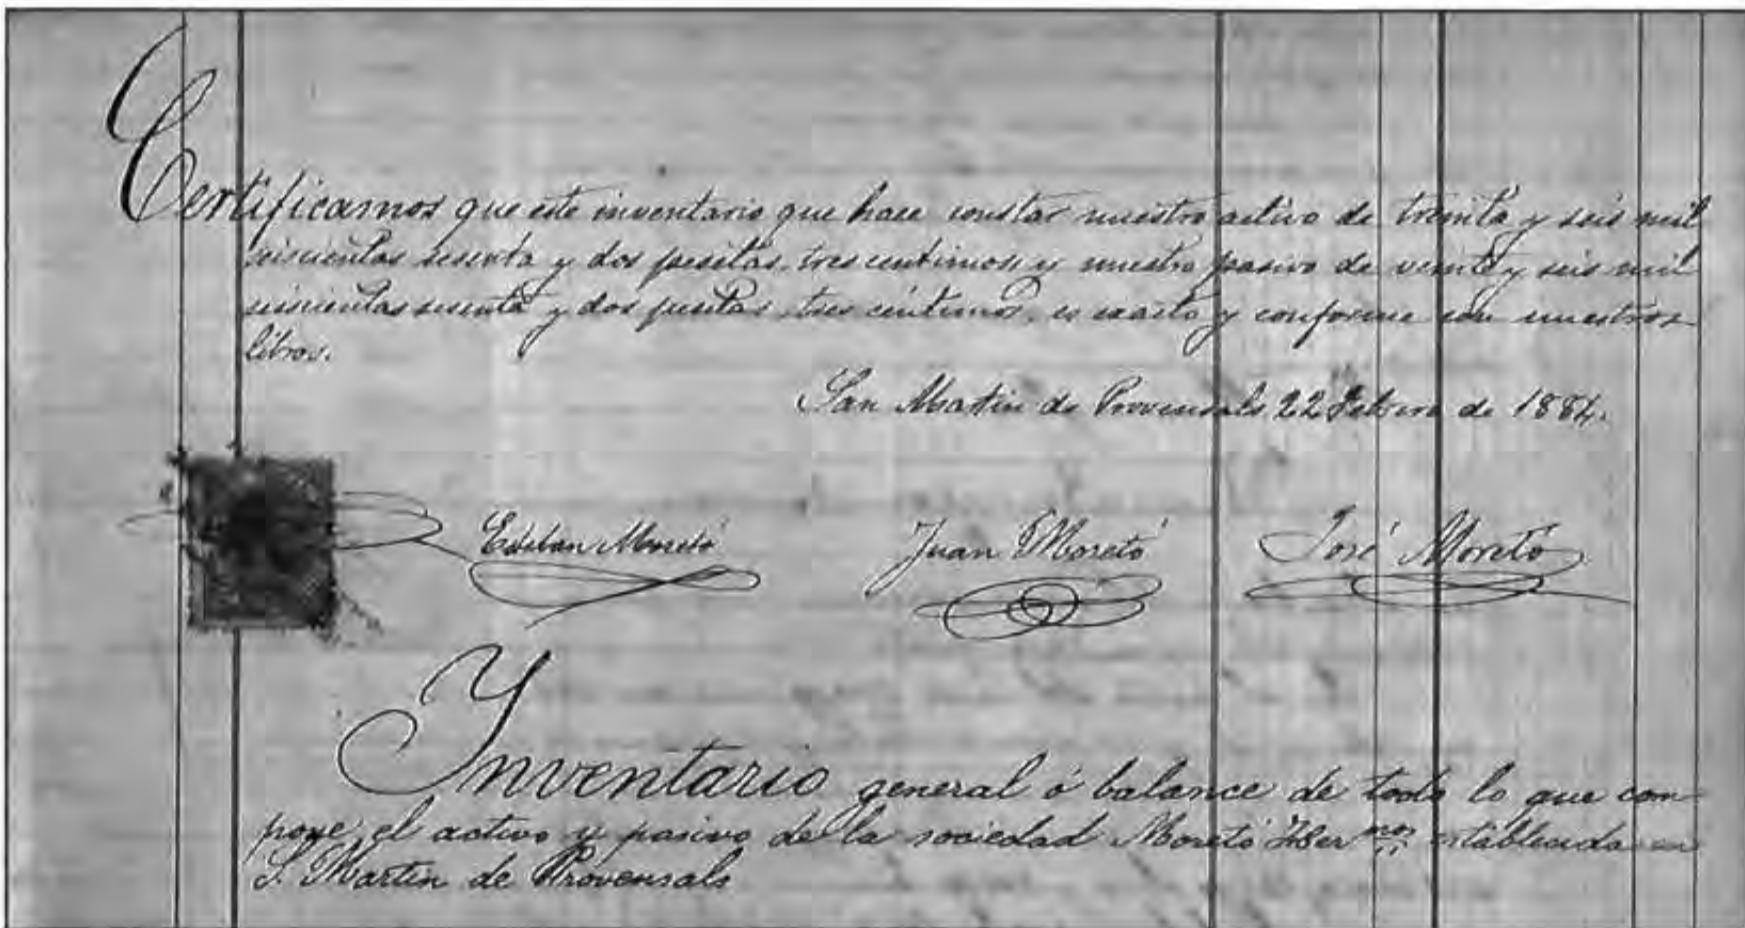 Certificamos que este inventario que hace constar nuestro activo de treinta y seis mil
seiscientas sesenta y dos pesetas, tres centimos y nuestro pasivo de veinte y seis mil
seiscientas sesenta y dos pesetas tres céntimos, es exacto y conforme con nuestros
libros.
San Martin de Provensals 22 Febrero de 1884.
Esteban Moretó
Juan Moretó
José Moretó
Ynventario general ó balance de todo lo que com-
pone el activo y pasivo de la sociedad Moretó Her nos establecida en
S. Martin de Provensals